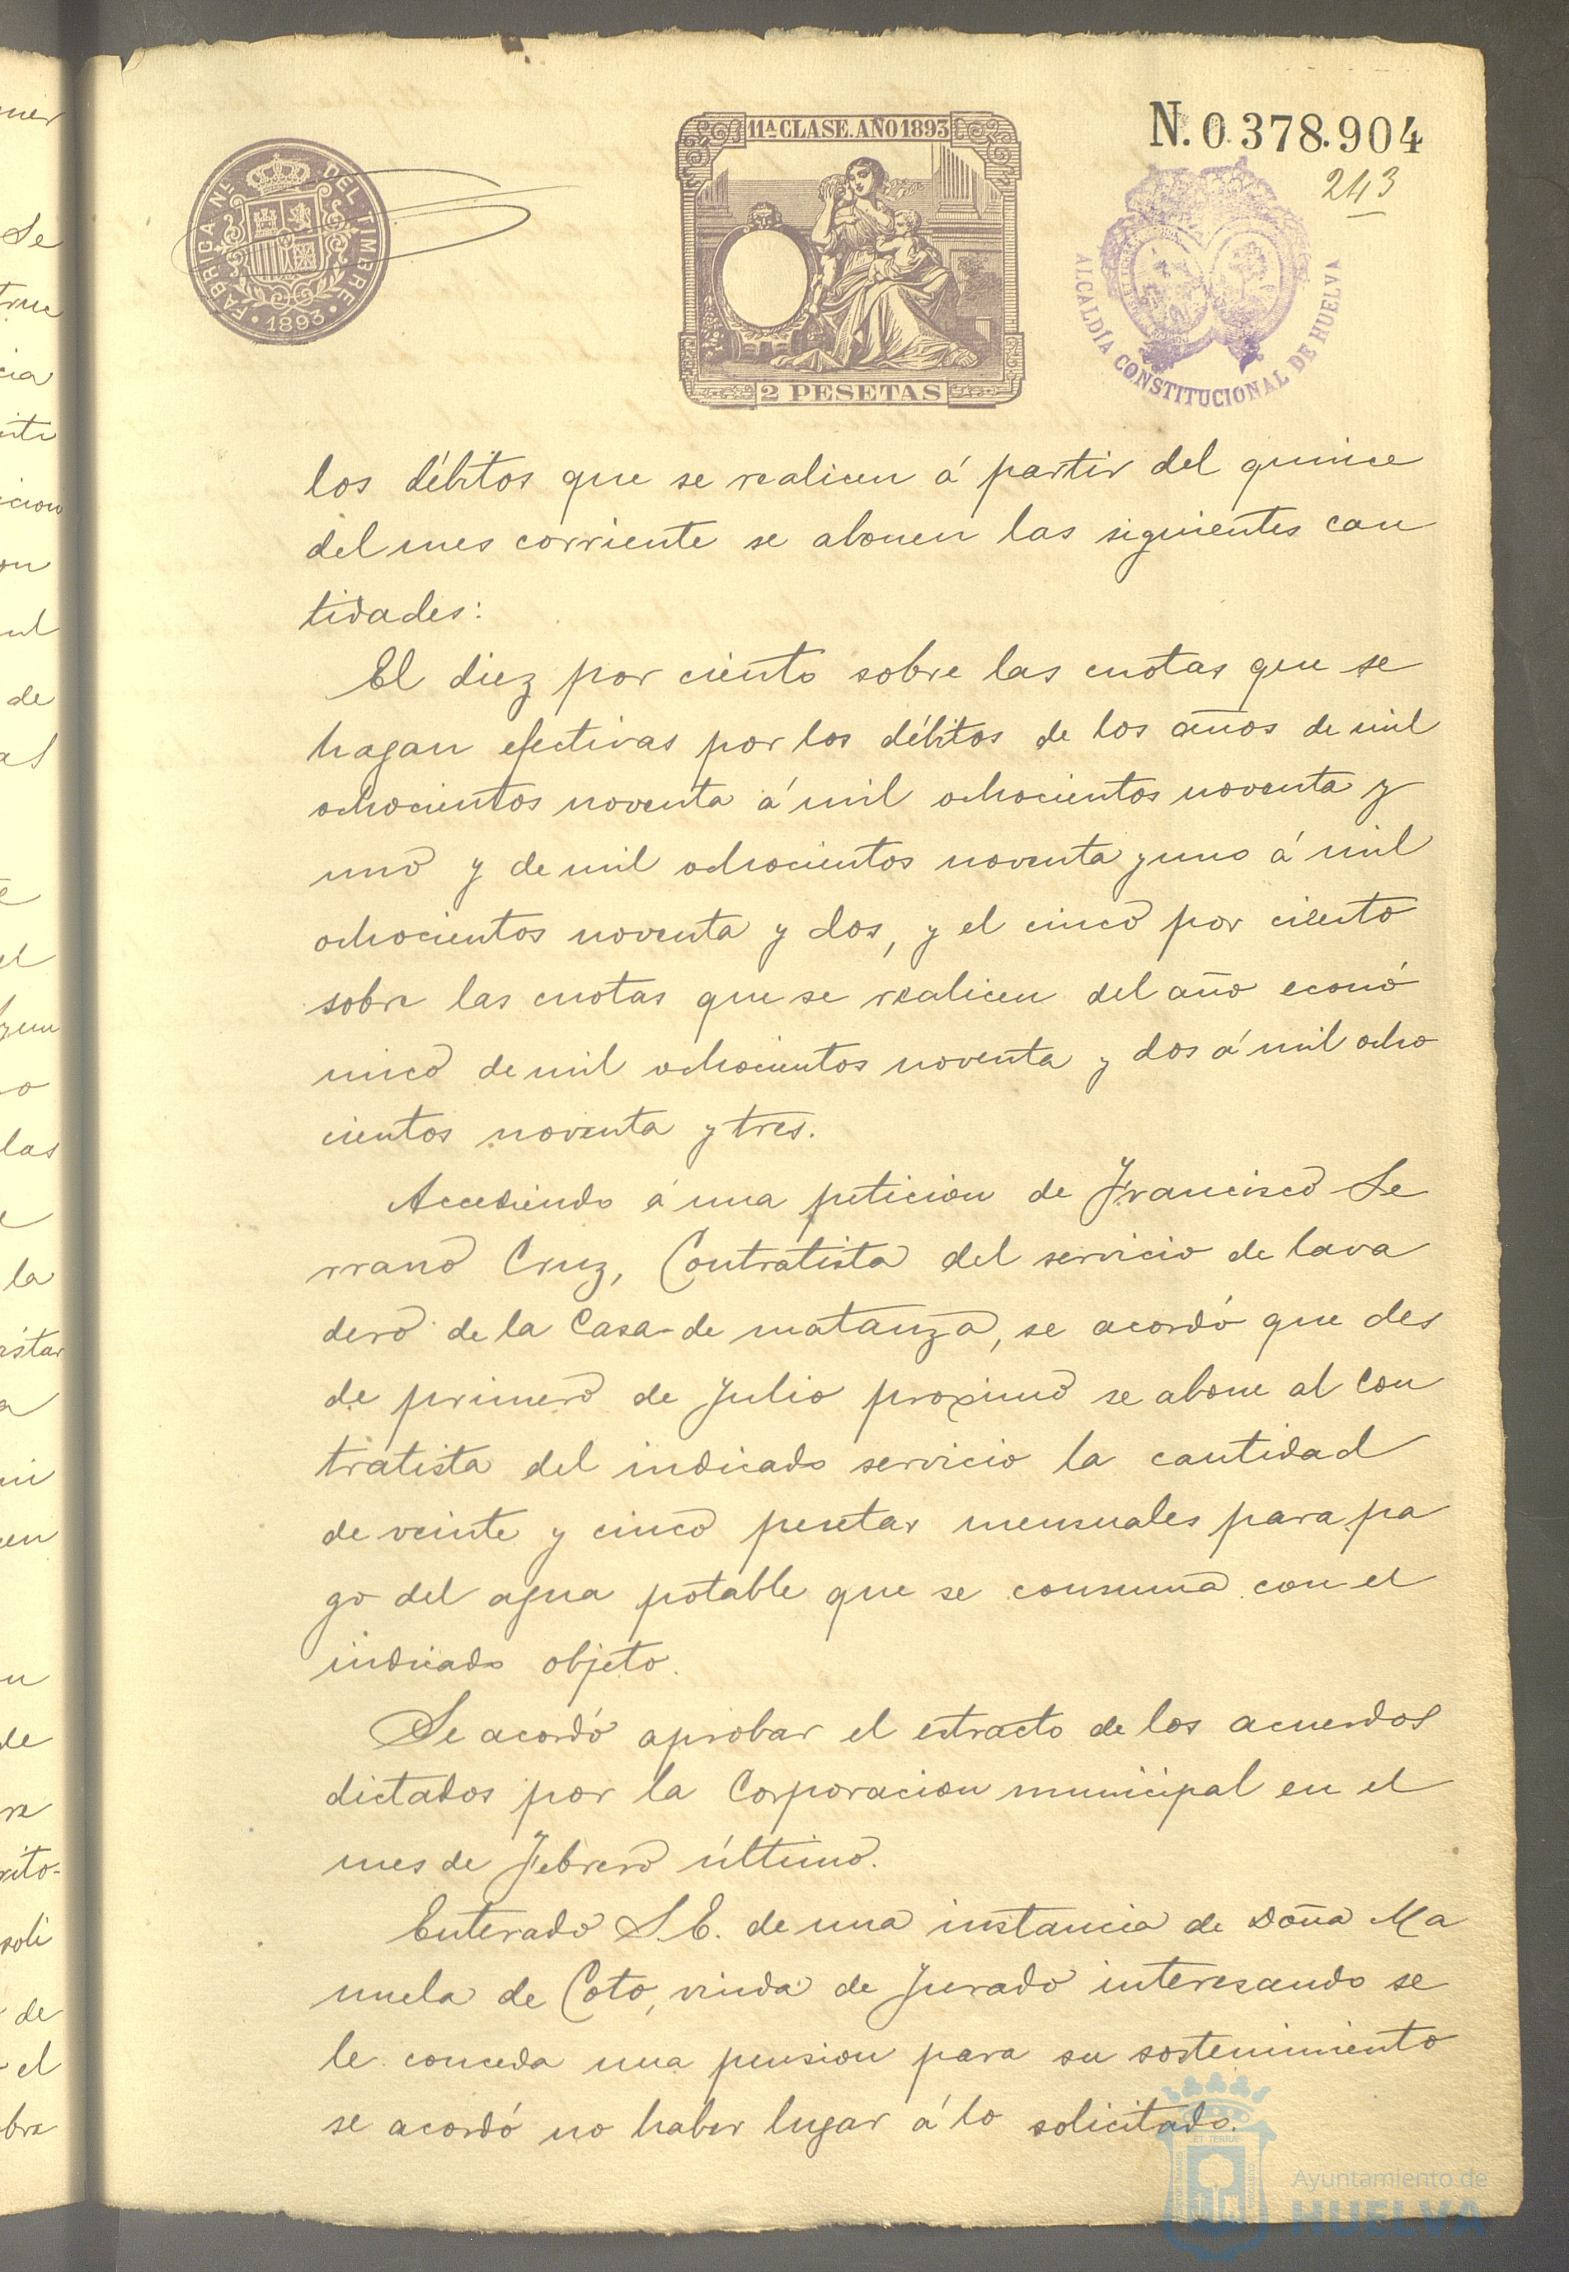 N. 0.378.904
243
11ª CLASE. AÑO 1893
FÁBRICA NL. DEL TIMBRE
1893
2 PESETAS
ALCALDÍA CONSTITUCIONAL DE HUELVA
los débitos que se realicen á partir del quince
del mes corriente se abonen las siguientes can
tidades:
El diez por ciento sobre las cuotas que se
hagan efectivas por los débitos de los años de mil
ochocientos noventa á mil ochocientos noventa y
uno y de mil ochocientos noventa y uno á mil
ochocientos noventa y dos, y el cinco por ciento
sobre las cuotas que se realicen del año econó
mico de mil ochocientos noventa y dos á mil ocho
cientos noventa y tres.
Accediendo á una peticion de Francisco Se
rrano Cruz, Contratista del servicio de lava
dero de la Casa-de matanza, se acordó que des
de primero de Julio proximo se abone al Con
tratista del indicado servicio la cantidad
de veinte y cinco pesetas mensuales para pa
go del agua potable que se consuma con el
indicado objeto.
Se acordó aprobar el estracto de los acuerdos
dictados por la Corporacion municipal en el
mes de Febrero último.
Enterado S.E. de una instancia de Doña Ma
nuela de Coto, viuda de Jurado interesando se
le conceda una pension para su sostenimiento
se acordó no haber lugar á lo solicitado.
Ayuntamiento de
HUELVA